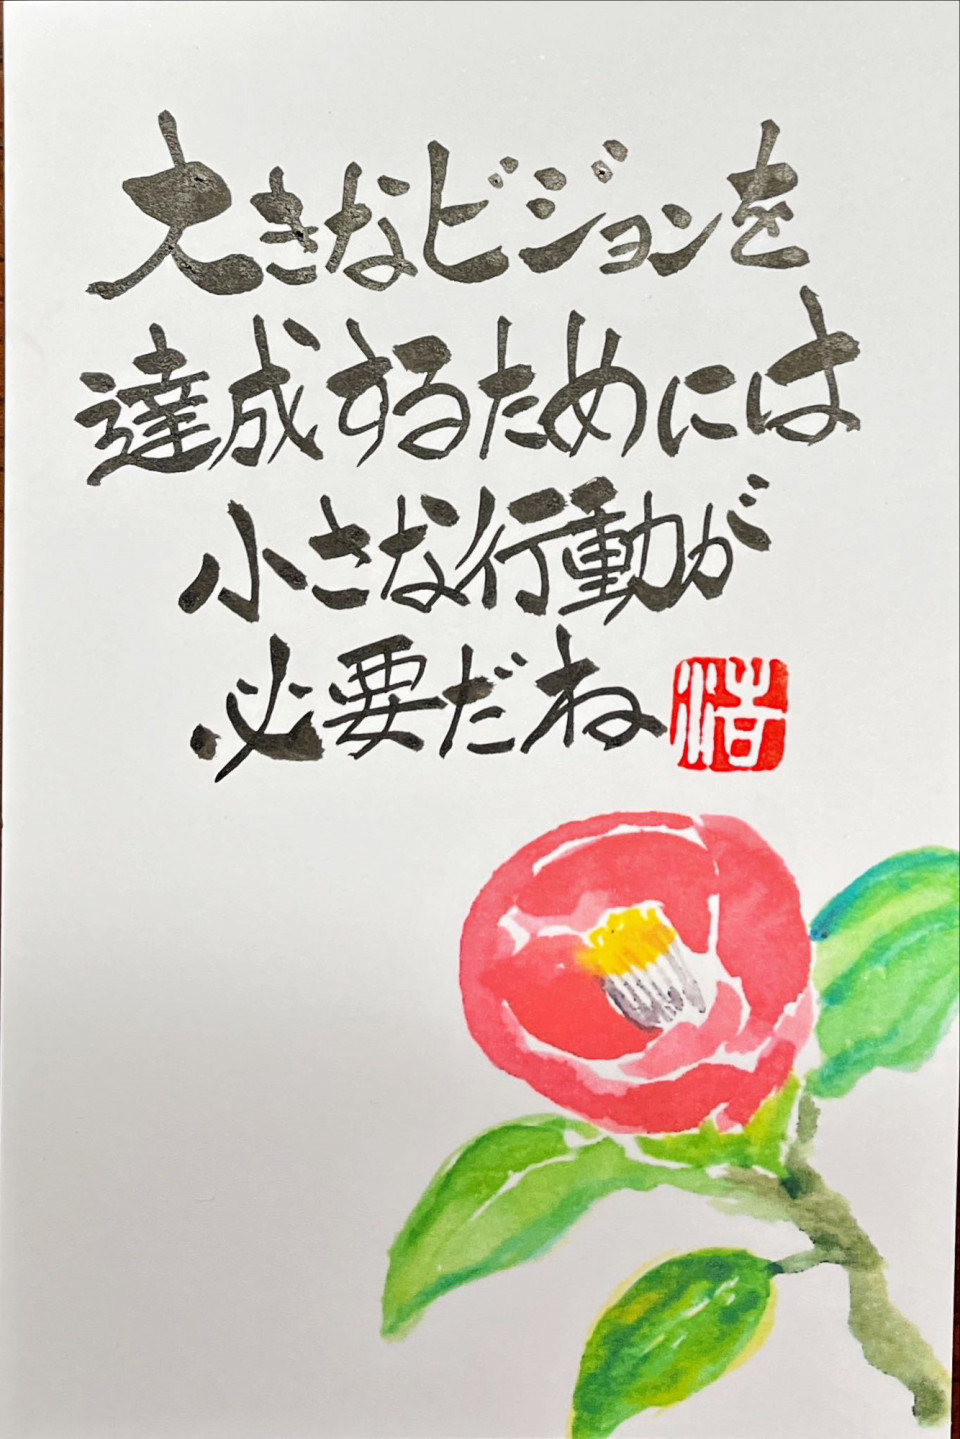 大きなビジョンを
達成するためには
小さな行動が
必要だね